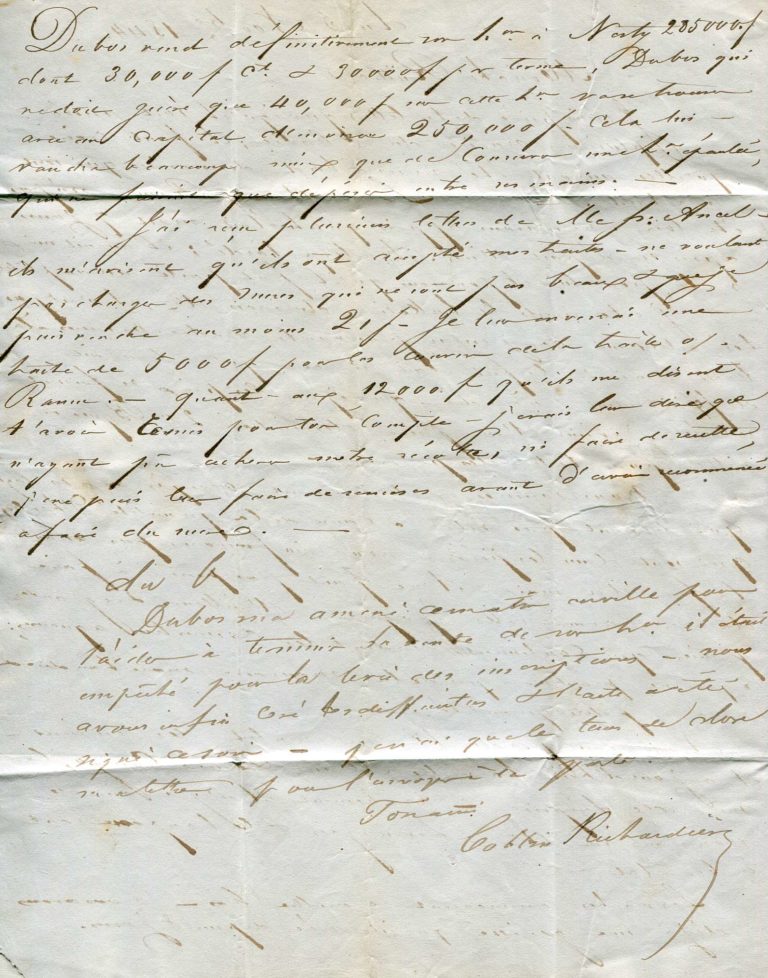 Dubos vend définitivement son h.on à Nesty 285000 f
dont 30,000 f ct & 30000 f par terme. Dubos qui
ne doit guère que 40,000 f sur cette h.on va se trouver
avec un capital d'environ 250,000 f. Cela lui
vaudra beaucoup mieux que de Conserver une h.on
qui que dépérir entre ses mains. —
J'ai reçu plusieurs lettres de Mr Ancel
ils m'avisent qu'ils ont accepté mes traites — ne voulant
pas charger des sucres qui ne sont pas beaux & que je
puis vendre au moins 21 f — Je leur enverrai une
traite de 5000 f pour les couvrir de la traite o/
— quant aux 12000 f qu'ils me disent
t'avoir remis pour ton Compte — j'evais leur dire que
n'ayant pu achever notre récolte, ni faire de recette,
je ne puis leur faire de remises avant d'avoir recommencé
à faire du sucre. —
du 6
Dubos m'a amené ce matin en ville pour
l'aider à terminer la vente de son h.on il était
empêché pour la levée des inscriptions — nous
avons enfin levé les difficultés & l'acte a été
signé ce soir — je n'ai que le tems de clore
ma lettre pour l'envoyer à la poste.
Ton ami
Richardière